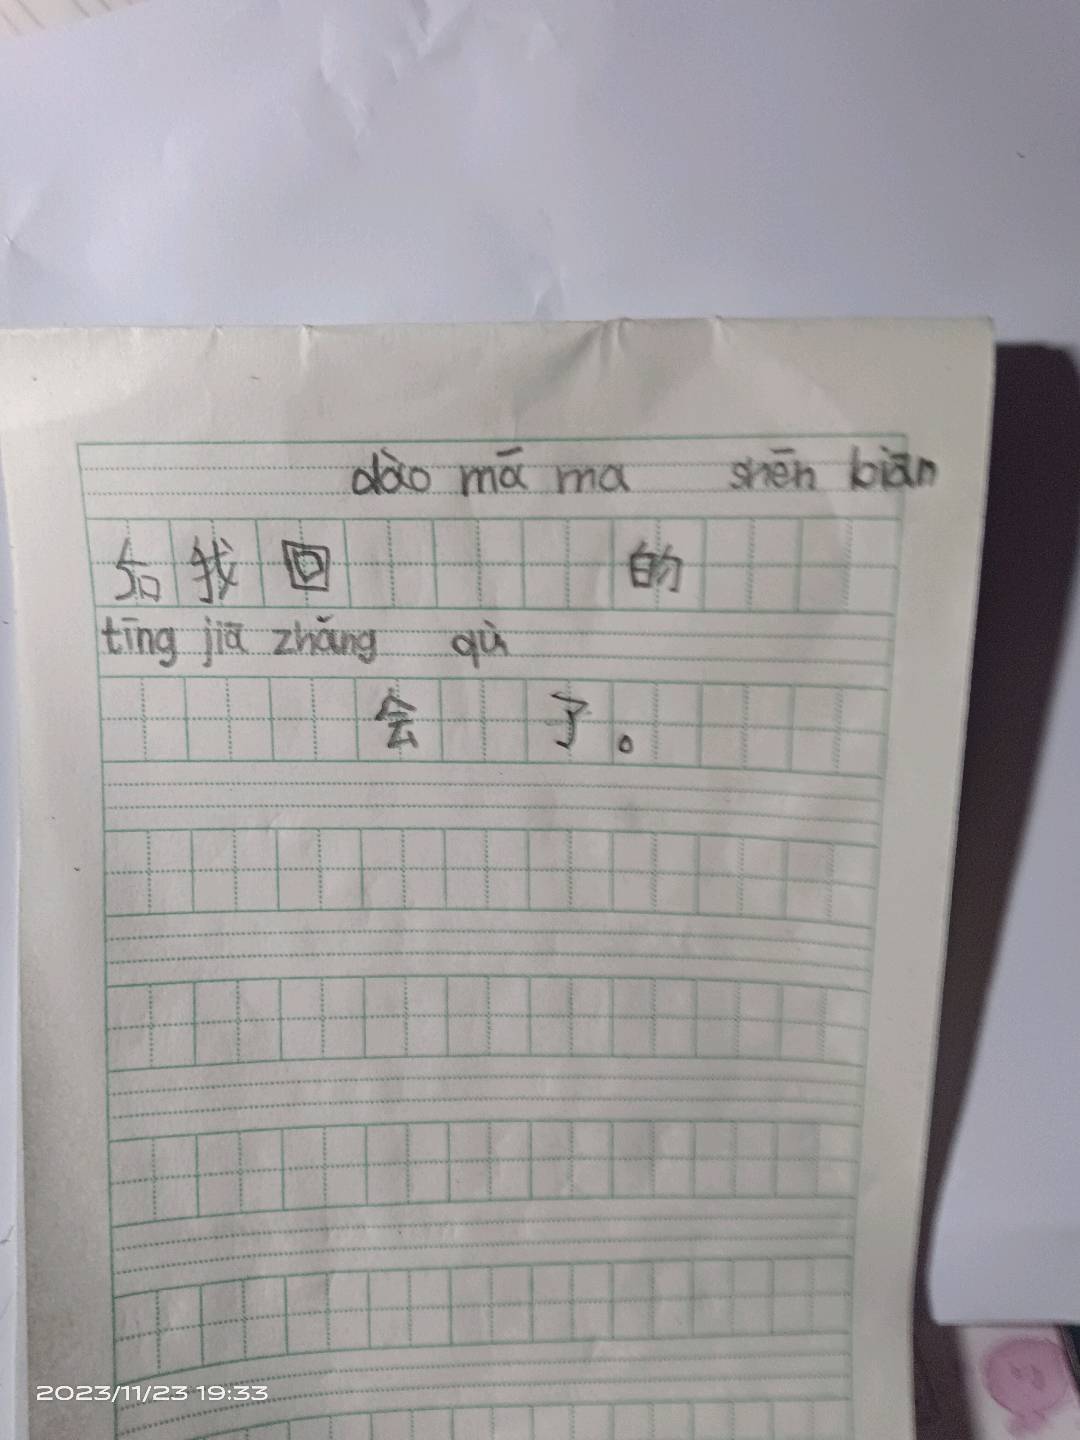 dào mā ma shēn biān
后我回的
tīng jiā zhǎng qù
会了。
2023/11/23 19:33